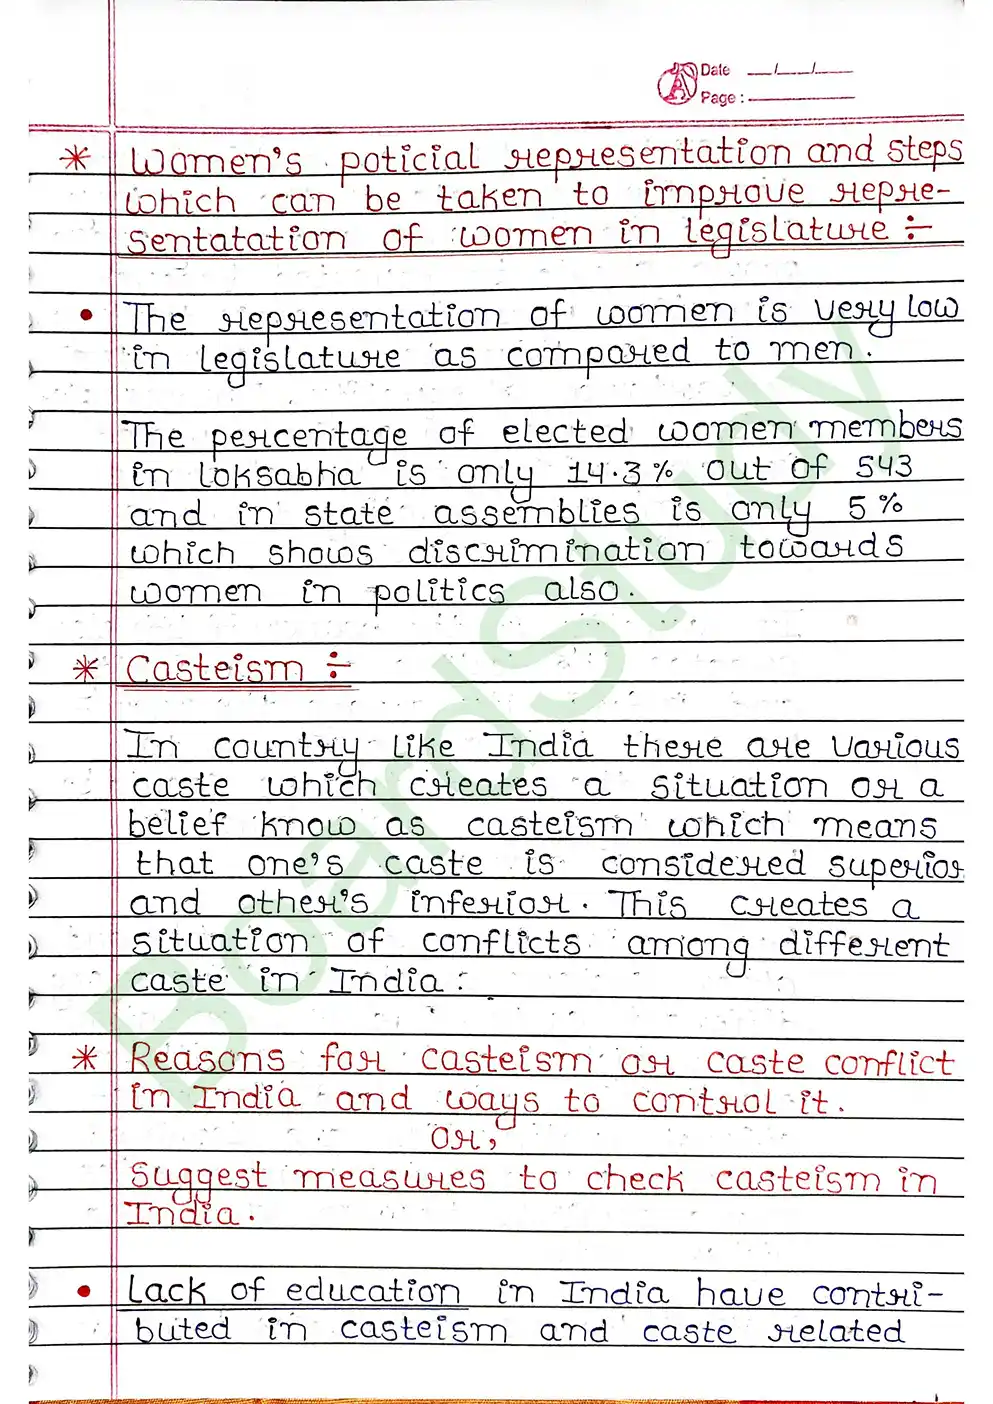 Date __/__/__
Page :
* Women's poticial representation and steps
which can be taken to improve repre-
sentatation of women in legislature ÷
• The representation of women is very low
in legislature as compared to men.
The percentage of elected women members
in loksabha is only 14.3% out of 543
and in state assemblies is only 5%
which shows discrimination towards
women in politics also.
* Casteism ÷
In country like India there are various
caste which creates a situation or a
belief know as casteism which means
that one's caste is considered superior
and other's inferior. This creates a
situation of conflicts among different
caste in India.
* Reasons for casteism or caste conflict
in India and ways to control it.
or,
Suggest measures to check casteism in
India.
• Lack of education in India have contri-
buted in casteism and caste related
BoardStudy